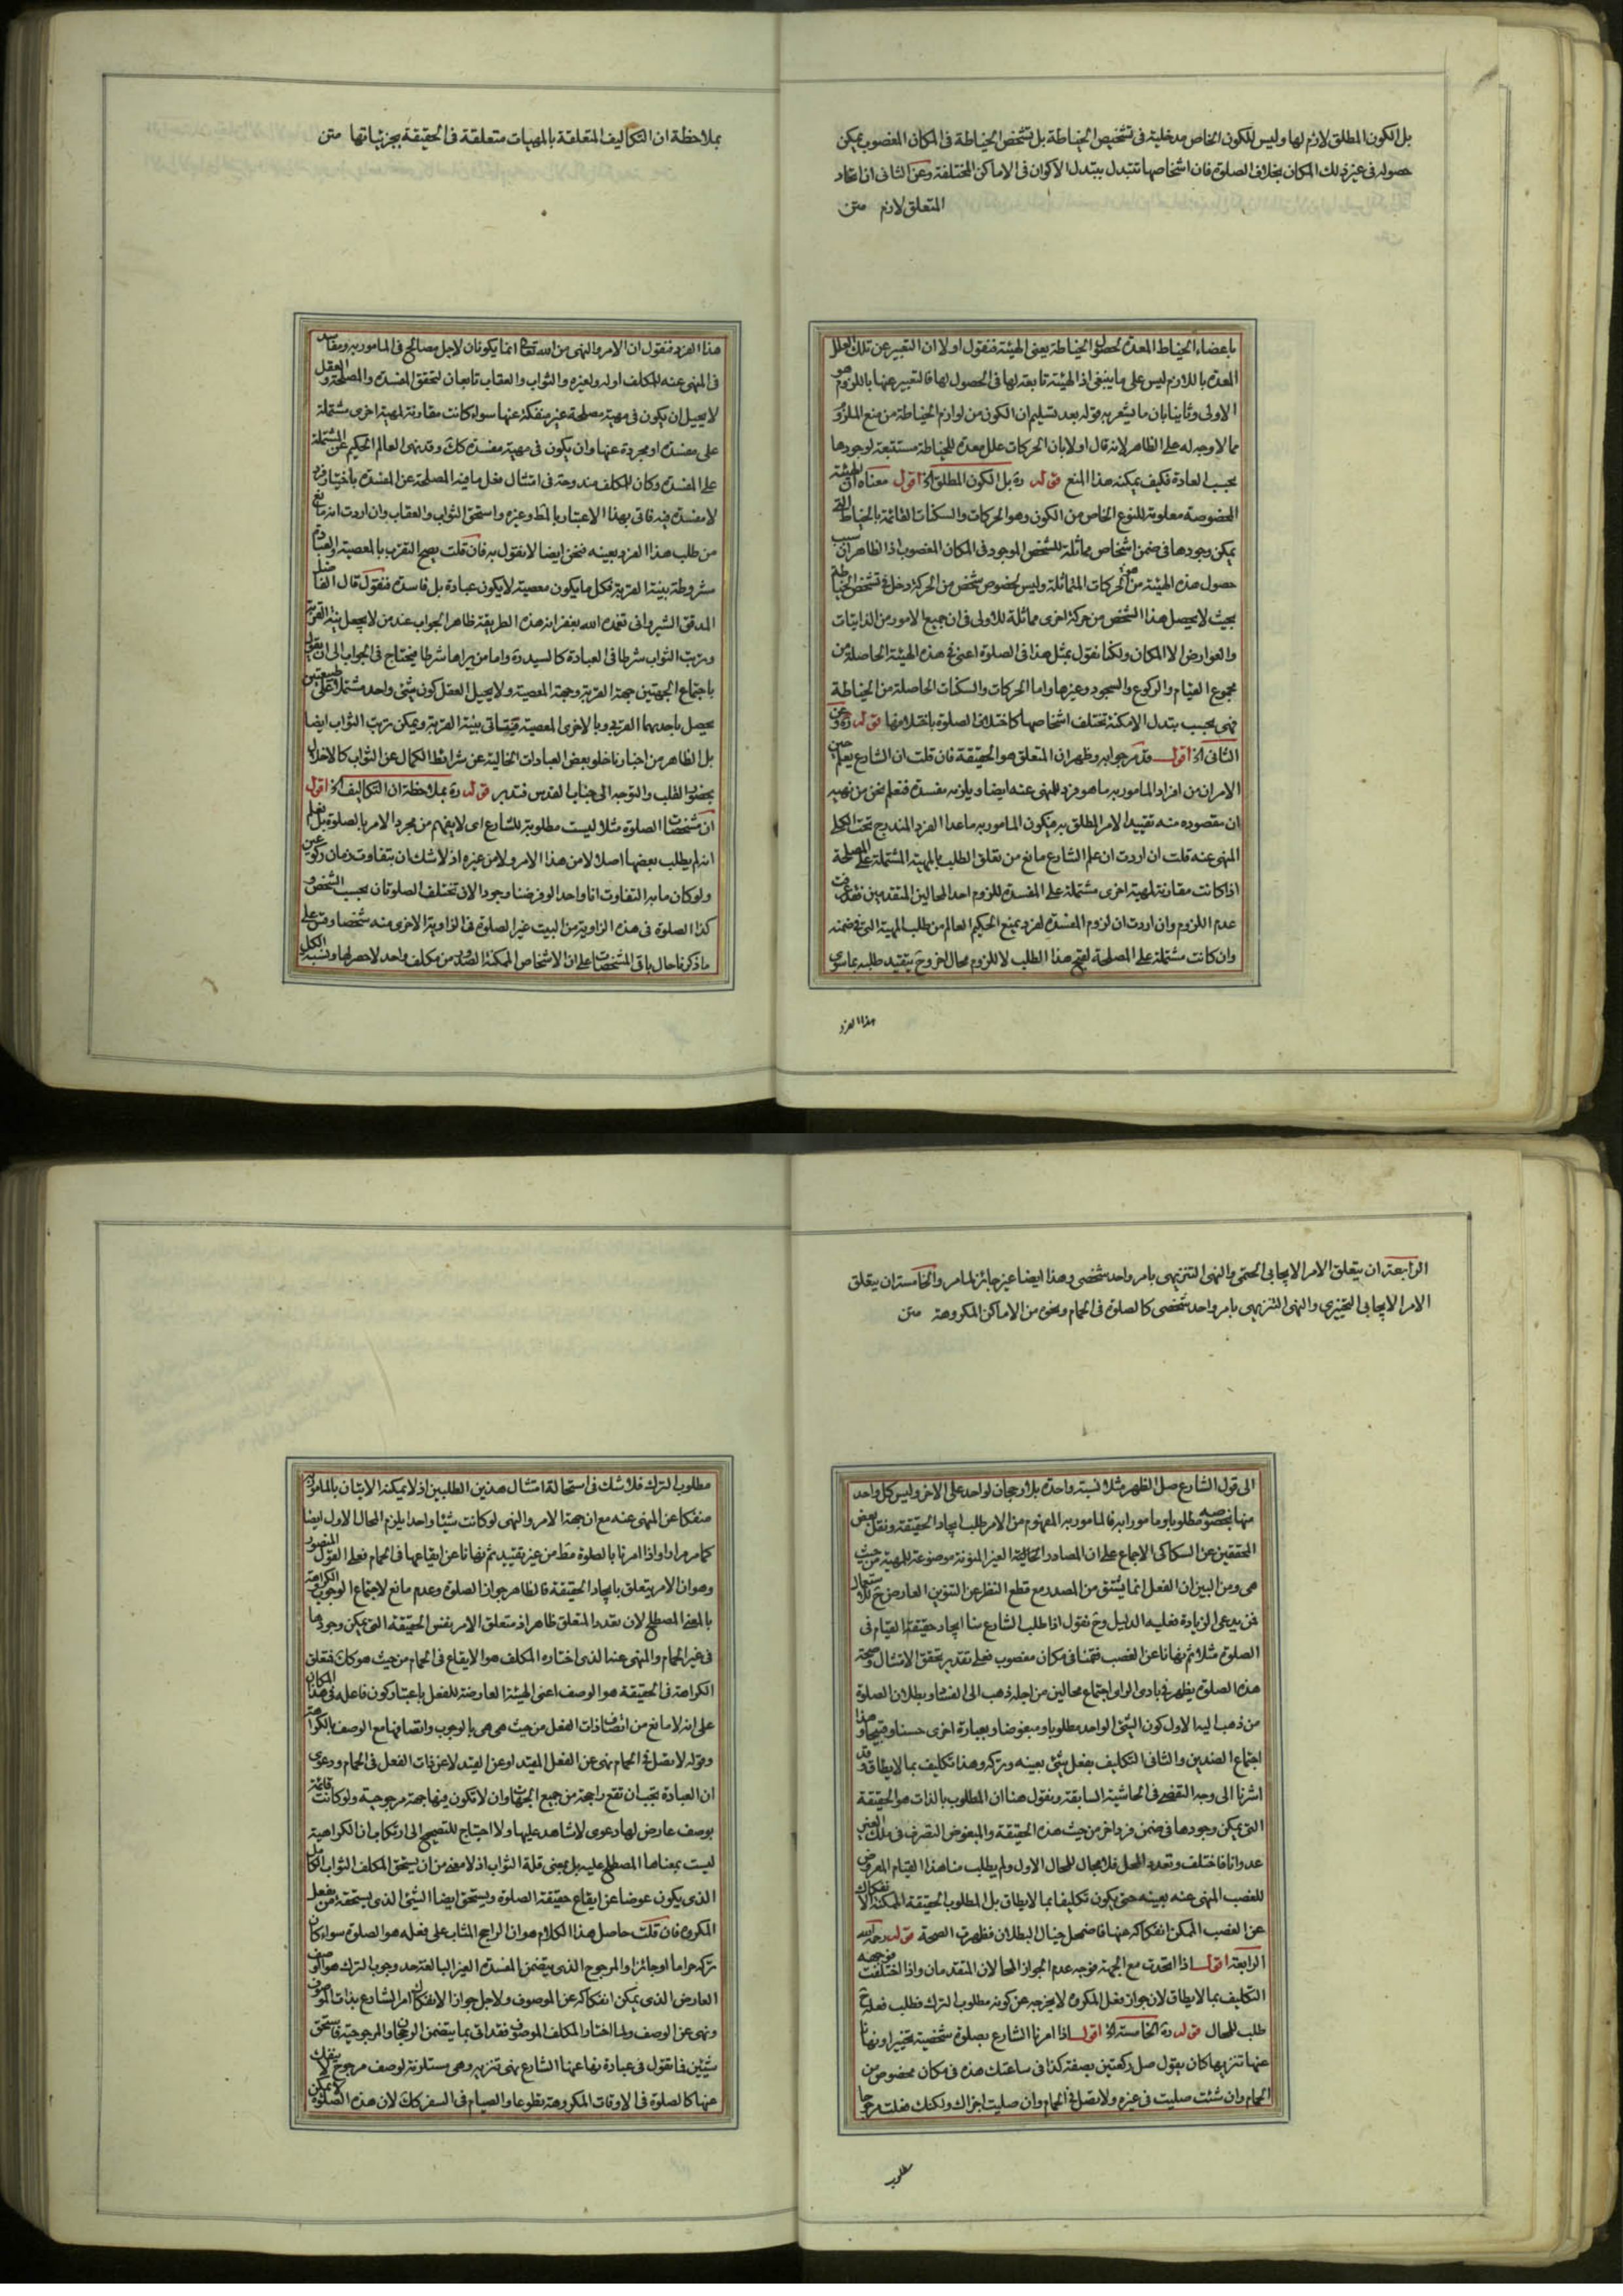 بل الكون المطلق لازم لها وليس للكون الخاص مدخلية فى تشخيص الخياطة بل تشخص الخياطة فى المكان المغصوب يمكن
حصوله فى غير ذلك المكان بخلاف الصلوة فان اشخاصها تتبدل بتبدل الاكوان فى الاماكن المختلفة وعن الثانى ان اتحاد
المتعلق لازم متن
باعضاء الخياط المعدة لحصول الخياطة بمعنى الهيئة فنقول اولا ان التعبير عن تلك العلل
المعدة باللازم ليس على ما ينبغى اذ الهيئة تابعة لها فى الحصول لها فالتعبير عنها بالملزوم هو
الاولى وثانيا بان ما يشعر به قوله بعد تسليم ان الكون من لوازم الخياطة من منع الملازمة
مما لا وجه له على الظاهر لانه قال اولا بان الحركات علل معدة للخياطة مستتبعة لوجودها
بحسب العادة فكيف يمكنه هذا المنع قوله ره بل الكون المطلق الخ اقول معناه ان الهيئة
المخصوصة معلولة للنوع الخاص من الكون وهو الحركات والسكنات القائمة بالخياط التى
يمكن وجودها فى ضمن اشخاص مماثلة للشخص الموجود فى المكان المغصوب اذ الظاهر ان سبب
حصول هذه الهيئة هو من الحركات المتماثلة وليس لخصوص شخص من الحركة دخل فى تشخص الخياطة
بحيث لا يحصل هذا الشخص من حركة اخرى مماثلة للاولى فى ان جميع الامور من الذاتيات
والعوارض الا المكان ولكنا نقول بمثل هذا فى الصلوة اعنى فى هذه الهيئة الحاصلة من
مجموع القيام والركوع والسجود وغيرها واما الحركات والسكنات الحاصلة من الخياطة
فهى بحسب بتدل الامكنة تختلف اشخاصها كاختلاف الصلوة باختلافها قوله ره وعن
الثانى الخ اقول قد مر جوابه وظهر ان المتعلق هو الحقيقة فان قلت ان الشارع يعلم حين
الامر ان من افراد المامور به ما هو فرد للمنهى عنه ايضا ويلزمه مفسدة فنعلم نحن من نهيه
ان مقصوده منه تقييد الامر المطلق به فيكون المامور به ما عدا الفرد المندرج تحت الكلى
المنهى عنه قلت ان اردت ان علم الشارع مانع من تعلق الطلب بالمهية المشتملة على المصلحة
اذا كانت مقارنة لمهية اخرى مشتملة على المفسدة للزوم احد المحالين المتقدمين فقد عرفت
عدم اللزوم وان اردت ان لزوم المفسدة لفرد يمنع الحكيم العالم من طلب المهية التى فى ضمنه
وان كانت مشتملة على المصلحة لقبح هذا الطلب لا للزوم محال اخر وح يتقيد طلبه بما سوى
هذا الفرد
بملاحظة ان التكاليف المتعلقة بالمهيات متعلقة فى الحقيقة بجزئياتها متن
هذا الفرد فنقول ان الامر والنهى من الله تعالى انما يكونان لاجل مصالح فى المامور به ومفاسد
فى المنهى عنه للمكلف اوله ولغيره والثواب والعقاب تابعان لتحقق المفسدة والمصلحة والعقل
لا يحيل ان يكون فى مهية مصلحة غير منفكة عنها سواء كانت مقارنة لمهية اخرى مشتملة
على مفسدة او مجردة عنها وان يكون فى مهية مفسدة كك وقد نهى العالم الحكيم عن المشتملة
على المفسدة وكان للمكلف مندوحة فى امتثال فعل ما فيه المصلحة عن المفسدة باختيار فرد
لا مفسدة فيه فاتى بهذا الاعتبار بالمط وغيره واستحق الثواب والعقاب وان اردت انه مانع
من طلب هذا الفرد بعينه فنحن ايضا لا نقول به فان قلت يصح التقرب بالمعصية والعبادة
مشروطة بنية القربة فكل ما يكون معصية لا يكون عبادة بل فاسدة فنقول قال الفاضل
المدقق الشيروانى تغمده الله بغفرانه هذه الطريقة ظاهر الجواب عند من لا يجعل نية القربة
وترتب الثواب شرطا فى العبادة كالسيد ره واما من يراها شرطا فيحتاج فى الجواب الى ان يقول
باجتماع الجهتين جهة القربة وجهة المعصية ولا يحيل العقل كون شئ واحد مشتملا على طبيعتين
يحصل باحديهما القرب وبالاخرى المعصية فيتاتى بنية القربة ويمكن ترتب الثواب ايضا
بل الظاهر من اخبارنا خلو بعض العبادات الخالية عن شرائط الكمال عن الثواب كالاخلال
بحضور القلب والتوجه الى جناب القدس فتدبر قوله ره بملاحظة ان التكاليف الخ اقول
ان مشخصات الصلوة مثلا ليست مطلوبة للشارع اى لا يفهم من مجرد الامر بالصلوة بل نعلم
انه لم يطلب بعضها اصلا لا من هذا الامر ولا من غيره اذ لا شك ان بتفاوت زمان ركوعين
ولو كان ما به التفاوت انا واحدا لو فرضنا وجود الان تختلف الصلوتان بحسب الشخص و
كذا الصلوة فى هذه الزاوية من البيت غير الصلوة فى الزاوية الاخرى منه شخصا وقس على
ما ذكرنا حال باقى المشخصات على ان الاشخاص الممكنة الصدور من مكلف واحد لا حصر لها ونسبة الكل
الرابعة ان يتعلق الامر الايجابى الحتمى والنهى التنزيهى بامر واحد شخصى وهذا ايضا غير جائز لما مر والخامسة ان يتعلق
الامر الايجابى التخييرى والنهى التنزيهى بامر واحد شخصى كالصلوة فى الحمام ونحوه من الاماكن المكروهة متن
الى قول الشارع صل الظهر مثلا نسبة واحدة بلا رجحان لواحد على الاخر وليس كل واحد
منها بخصوصه مطلوبا ومامورا به فالمامور به المفهوم من الامر طلب ايجاد الحقيقة ونقل بعض
المحققين عن السكاكى الاجماع على ان المصادر الخالية الغير المنونة موضوعة للمهية من حيث
هى ومن البين ان الفعل انما يشتق من المصدر مع قطع النظر عن التنوين العارض ح للاستعمال
فمن يدعى الزيادة فعليه الدليل وح نقول اذا طلب الشارع منا ايجاد حقيقة القيام فى
الصلوة مثلا ثم نهانا عن الغصب فقمنا فى مكان مغصوب فعلى تقدير تحقق الامتثال وصحة
هذه الصلوة يظهر فى بادى الراى اجتماع محالين من اجله ذهب الى الفساد وبطلان الصلوة
من ذهب اليه الاول كون الشئ الواحد مطلوبا ومبغوضا وبعبارة اخرى حسنا وقبيحا وهذا
اجتماع الضدين والثانى التكليف بفعل شئ بعينه وتركه وهذا تكليف بما لا يطاق وقد
اشرنا الى وجه التفصى فى الحاشية السابقة ونقول هنا ان المطلوب بالذات هو الحقيقة
التى يمكن وجودها فى ضمن فرد اخر من حيث هذه الحقيقة والمبغوض التصرف فى ملك الغير
عدوانا فاختلف وتعدد المحل فلا مجال للمحال الاول ولم يطلب منا هذا القيام المعروض
للغصب المنهى عنه بعينه حتى يكون تكليفا بما لا يطاق بل المطلوب الحقيقة الممكنة الانفكاك
عن الغصب الممكن انفكاكه عنها فاضمحل خيال البطلان فظهرت الصحة قوله رحمه الله
الرابعة اقول اذا اتحدت مع الجهة فوجه عدم الجواز المحالان المتقدمان واذا اختلفت فوجهه
التكليف بما لا يطاق لان جواز فعل المكروه لا يخرجه عن كونه مطلوب الترك فطلب فعله ح
طلب للمحال قوله ره الخامسة الخ اقول اذا امرنا الشارع بصلوة شخصية تخييرا ونهانا
عنها تنزيها كان يقول صل ركعتين بصفة كذا فى ساعتك هذه فى مكان مخصوص من
الحمام وان شئت صليت فى غيره ولا تصل فى الحمام وان صليت اجزاك ولكنك فعلت مرجوحا
مطلوب
مطلوب الترك فلا شك فى استحالة امتثال هذين الطلبين اذ لا يمكنه الاتيان بالمامور به
منفكا عن المنهى عنه مع ان جهة الامر والنهى لو كانت شيئا واحدا يلزم المحال الاول ايضا
كما مر مرارا واذا امرنا بالصلوة مقط من غير تقييد ثم نهانا عن ايقاعها فى الحمام فعلى القول المنصور
وهو ان الامر يتعلق بايجاد الحقيقة فالظاهر جواز الصلوة وعدم مانع لاجتماع الوجوب والكراهة
بالمعنى المصطلح لان تعدد المتعلق ظاهر اذ متعلق الامر نفس الحقيقة التى يمكن وجودها
فى غير الحمام والمنهى عنها الذى اختاره المكلف هو الايقاع فى الحمام من حيث هو كك فتعلق
الكراهة فى الحقيقة هو الوصف اعنى الهيئة العارضة للفعل باعتبار كون فاعله فى هذا المكان
على انه لا مانع من اتصاف ذات الفعل من حيث هى هى بالوجوب واتصافها مع الوصف بالكراهة
وقوله لا تصل فى الحمام نهى عن الفعل المقيد او عن القيد لا عن ذات الفعل فى الحمام ودعوى
ان العبادة يجب ان تقع راجحة من جميع الجهات وان لا تكون فيها جهة مرجوحية ولو كانت قائمة
بوصف عارض لها دعوى لا شاهد عليها ولا احتياج للتصحيح الى ارتكاب ان الكراهية
ليست بمعناها المصطلح عليه بل بمعنى قلة الثواب اذ لا مفر من ان يستحق المكلف الثواب الكامل
الذى يكون عوضا عن ايقاع حقيقة الصلوة ويستحق ايضا الشئ الذى يستحقه من يفعل
المكروه فان قلت حاصل هذا الكلام هو ان الراجح المثاب على فعله هو الصلوة سواء كان
تركه حراما او جائزا والمرجوح الذى يتضمن المفسدة الغير البالغة حد وجوب الترك هو الوصف
العارض الذى يمكن انفكاكه عن الموصوف ولاجل جواز الانفكاك امر الشارع بذات الموصوف
ونهى عن الوصف ولما اختار المكلف الموصوف فقد اتى بما يتضمن الرجحان والمرجوحية فاستحق
شيئين فما تقول فى عبادة نهانا عنها الشارع نهى تنزيه وهى مستلزمة لوصف مرجوح لا ينفك
عنها كالصلوة فى الاوقات المكروهة تطوعا والصيام فى السفر كك لان هذه الصلوة لا يمكن